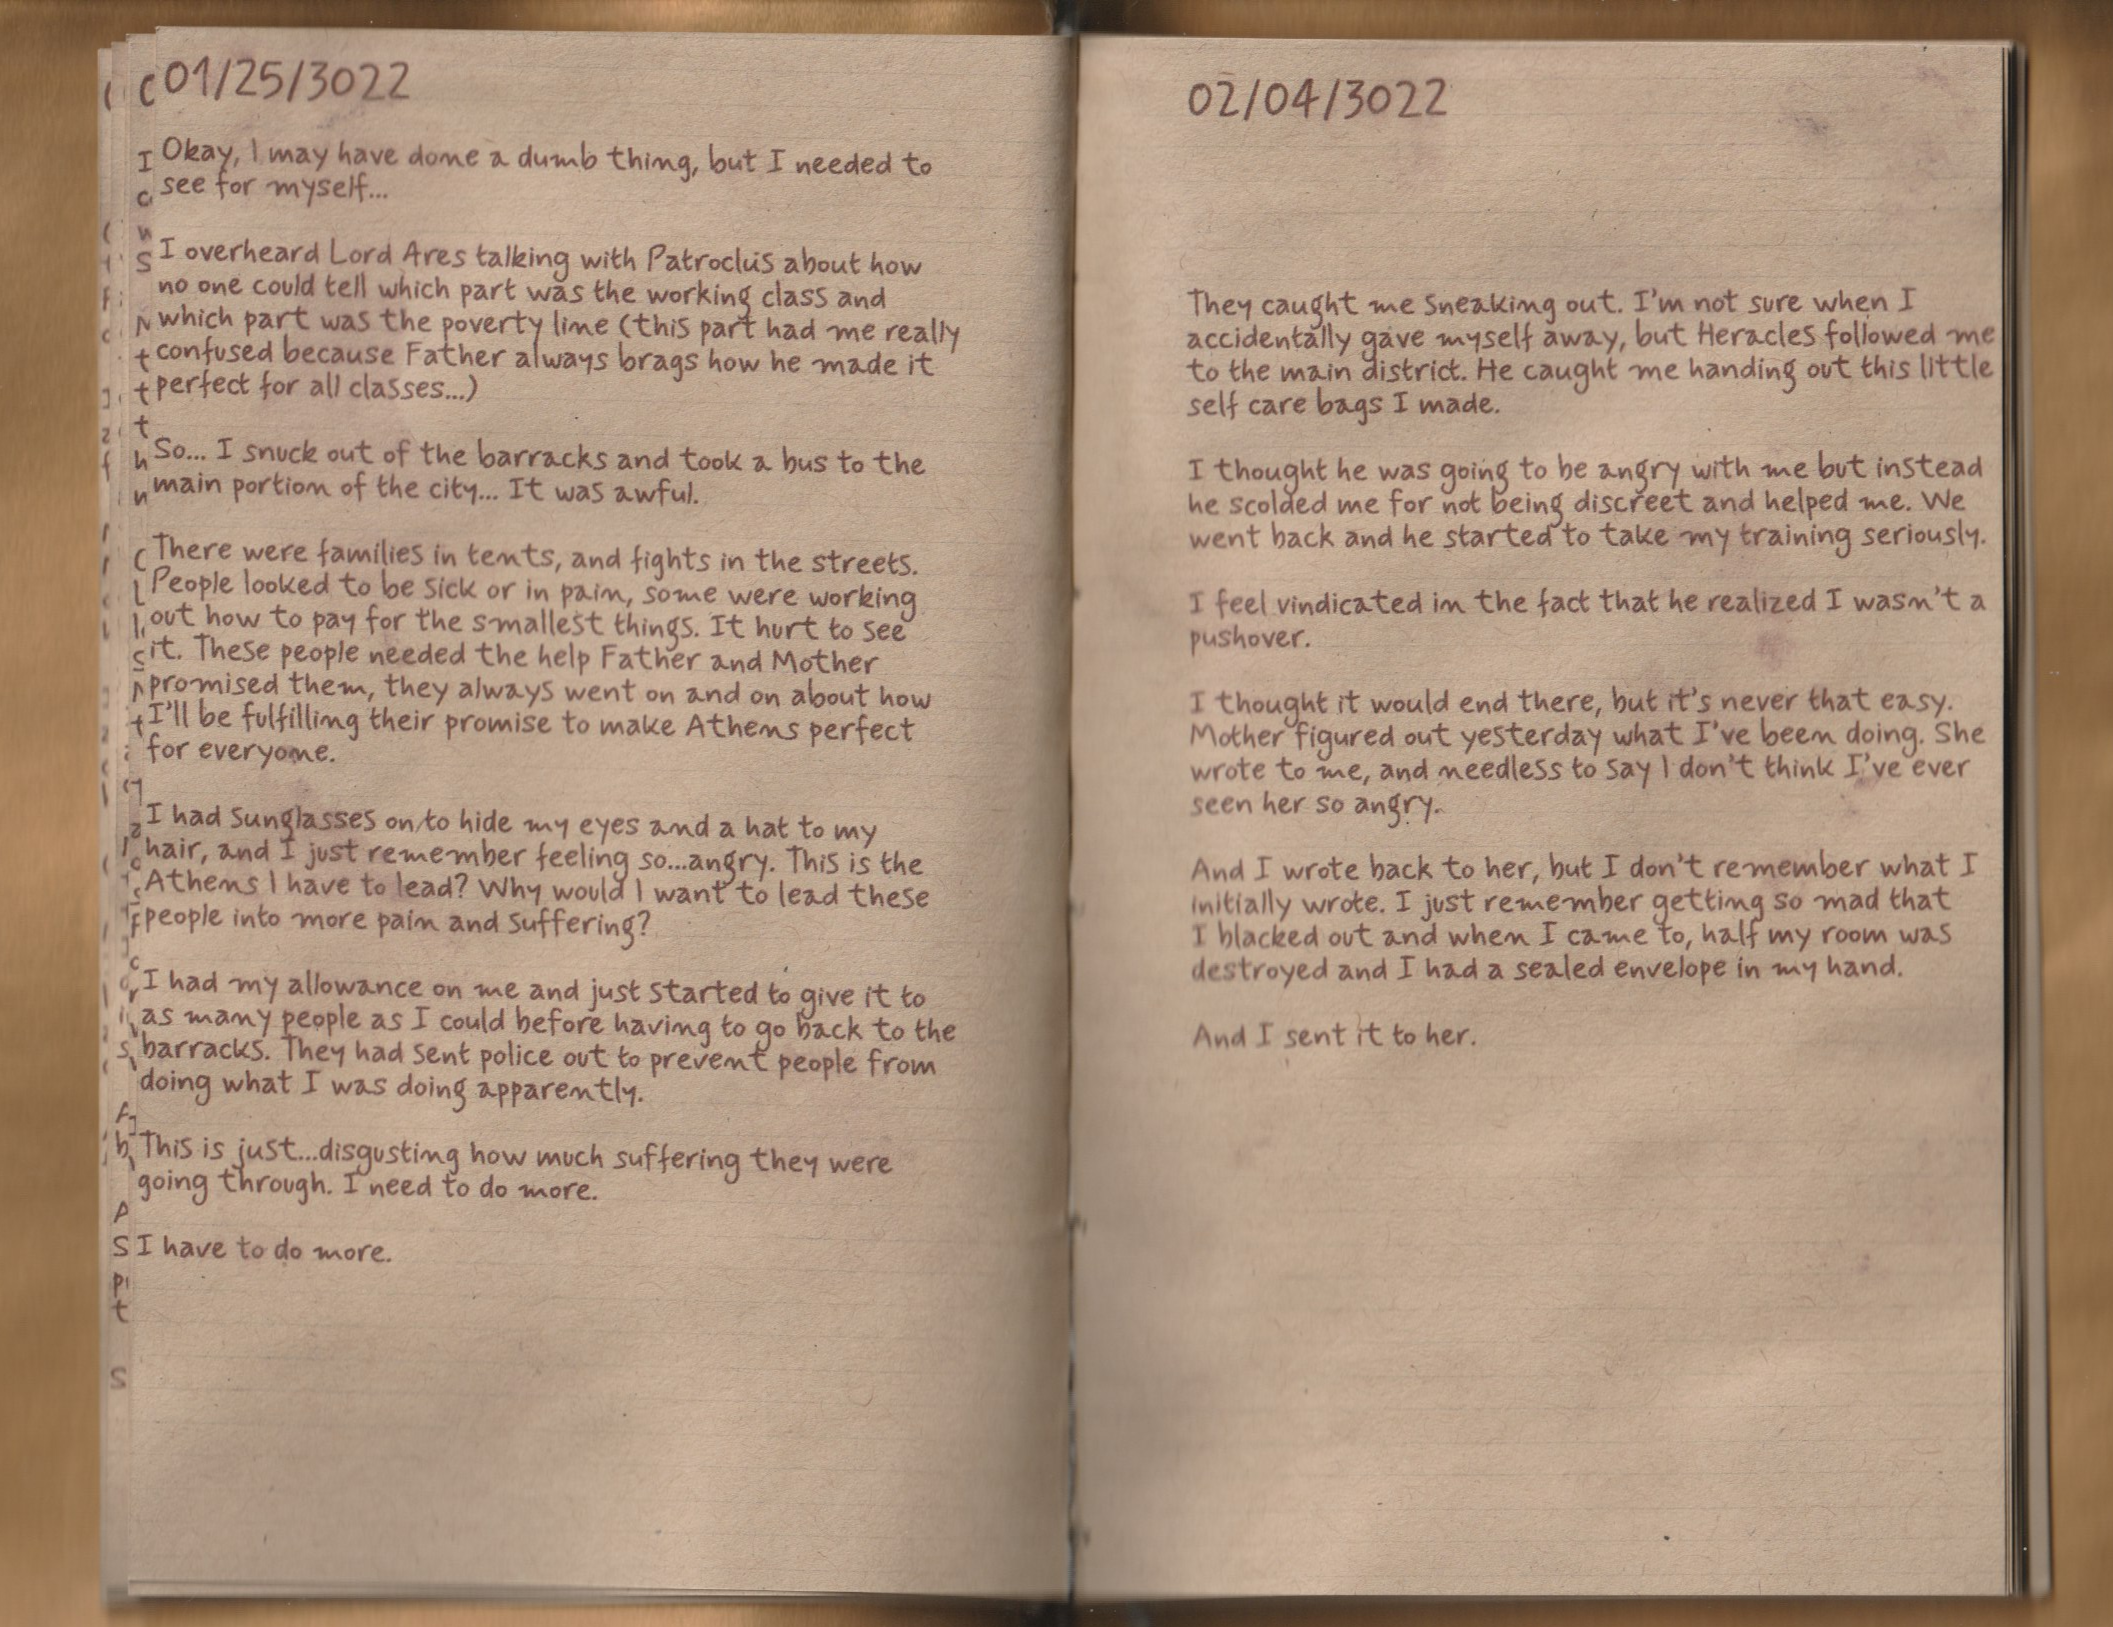 01/25/3022
Okay, I may have done a dumb thing, but I needed to
see for myself...
I overheard Lord Ares talking with Patroclus about how
no one could tell which part was the working class and
which part was the poverty line (this part had me really
confused because Father always brags how he made it
perfect for all classes...)
So... I snuck out of the barracks and took a bus to the
main portion of the city... It was awful.
There were families in tents, and fights in the streets.
People looked to be sick or in pain, some were working
out how to pay for the smallest things. It hurt to see
it. These people needed the help Father and Mother
promised them, they always went on and on about how
I'll be fulfilling their promise to make Athens perfect
for everyone.
I had sunglasses on to hide my eyes and a hat to my
hair, and I just remember feeling so...angry. This is the
Athens I have to lead? Why would I want to lead these
people into more pain and suffering?
I had my allowance on me and just started to give it to
as many people as I could before having to go back to the
barracks. They had sent police out to prevent people from
doing what I was doing apparently.
This is just...disgusting how much suffering they were
going through. I need to do more.
I have to do more.
02/04/3022
They caught me sneaking out. I'm not sure when I
accidentally gave myself away, but Heracles followed me
to the main district. He caught me handing out this little
self care bags I made.
I thought he was going to be angry with me but instead
he scolded me for not being discreet and helped me. We
went back and he started to take my training seriously.
I feel vindicated in the fact that he realized I wasn't a
pushover.
I thought it would end there, but it's never that easy.
Mother figured out yesterday what I've been doing. She
wrote to me, and needless to say I don't think I've ever
seen her so angry.
And I wrote back to her, but I don't remember what I
initially wrote. I just remember getting so mad that
I blacked out and when I came to, half my room was
destroyed and I had a sealed envelope in my hand.
And I sent it to her.